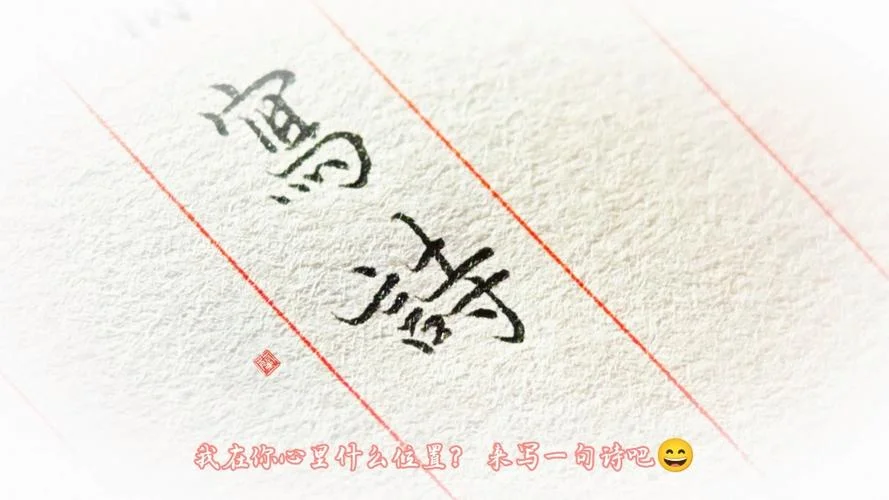 寫詩
我在你心里什么位置? 来写一句诗吧😄